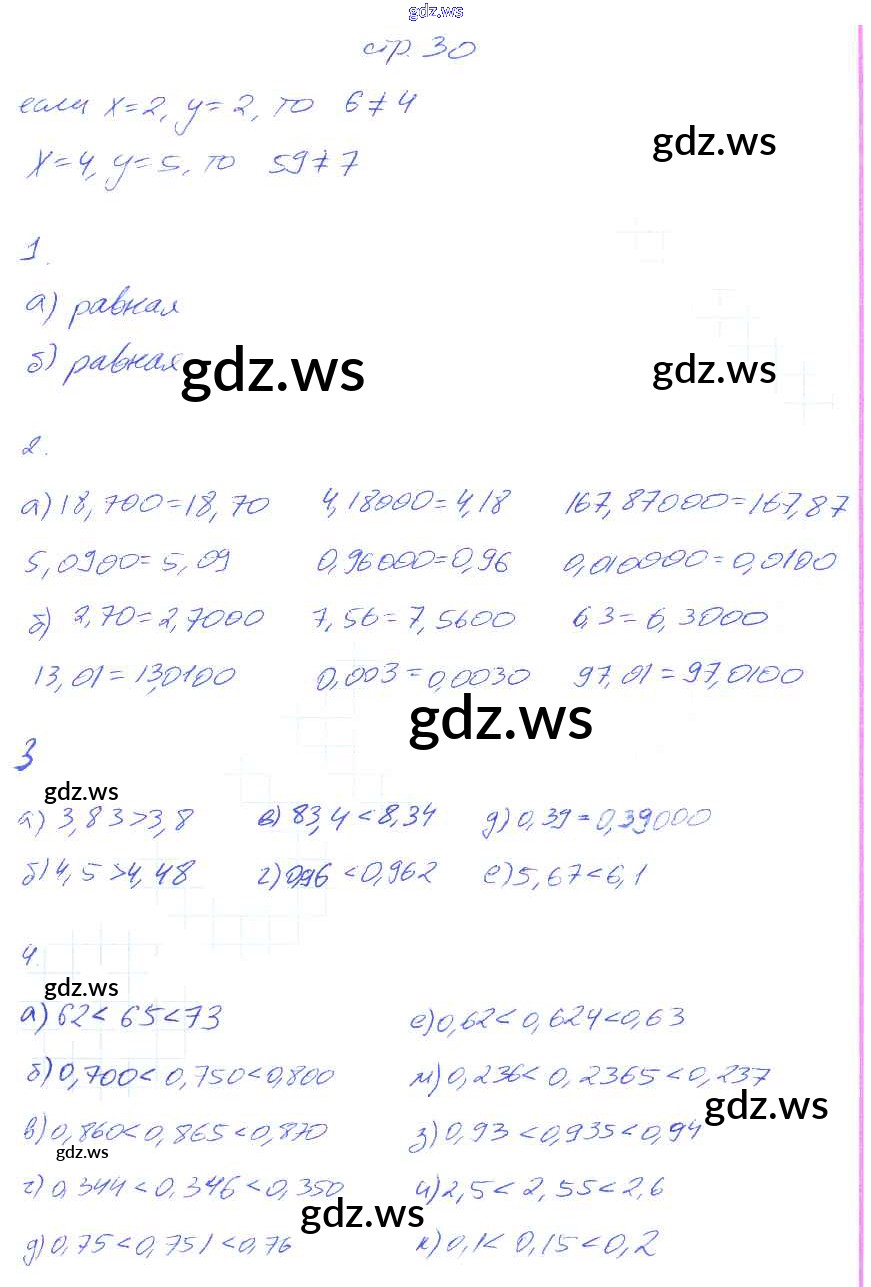 gdz.ws
стр. 30
если x=2, y=2, то 6≠4
gdz.ws
x=4, y=5, то 59≠7
1.
а) равная
б) равная
gdz.ws gdz.ws
2.
а) 18,700=18,70 4,18000=4,18 167,87000=167,87
5,0900=5,09 0,96000=0,96 0,010000=0,0100
б) 2,70=2,7000 7,56=7,5600 6,3=6,3000
13,01=13,0100 0,003=0,0030 97,01=97,0100
gdz.ws
3
gdz.ws
а) 3,83>3,8 в) 83,4<8,34 д) 0,39=0,39000
б) 4,5>4,48 г) 0,96<0,962 е) 5,67<6,1
4.
gdz.ws
а) 62<65<73 е) 0,62<0,624<0,63
б) 0,700<0,750<0,800 м) 0,236<0,2365<0,237
gdz.ws
в) 0,860<0,865<0,870 з) 0,93<0,935<0,94
gdz.ws
г) 0,344<0,346<0,350 и) 2,5<2,55<2,6
gdz.ws
д) 0,75<0,751<0,76 к) 0,1<0,15<0,2